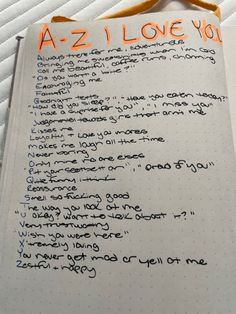 A-Z I LOVE YOU
Always there for me, adventurous
Bringing me sweatshirts when I am cold
Call me beautiful, coffee runs, charming
"Do you want a bite?"
Encouraging me
Faithful
Goodnight texts
"How did you sleep?", "Have you eaten today?"
"I have a surprise for you", "I miss you"
Judgements towards girls that aren't me
Kisses me
Loyalty & Love you mores
Makes me laugh all the time
Never
Only mine no one elses
"Put your seatbelt on", "proud of you"
Quite funny I think
Reassurance
Smell so fucking good
The way you look at me
"U okay? Want to talk about it?"
Very trustworthy
"Wish you were here"
X-tremely loving
You never get mad or yell at me
Zestful + happy